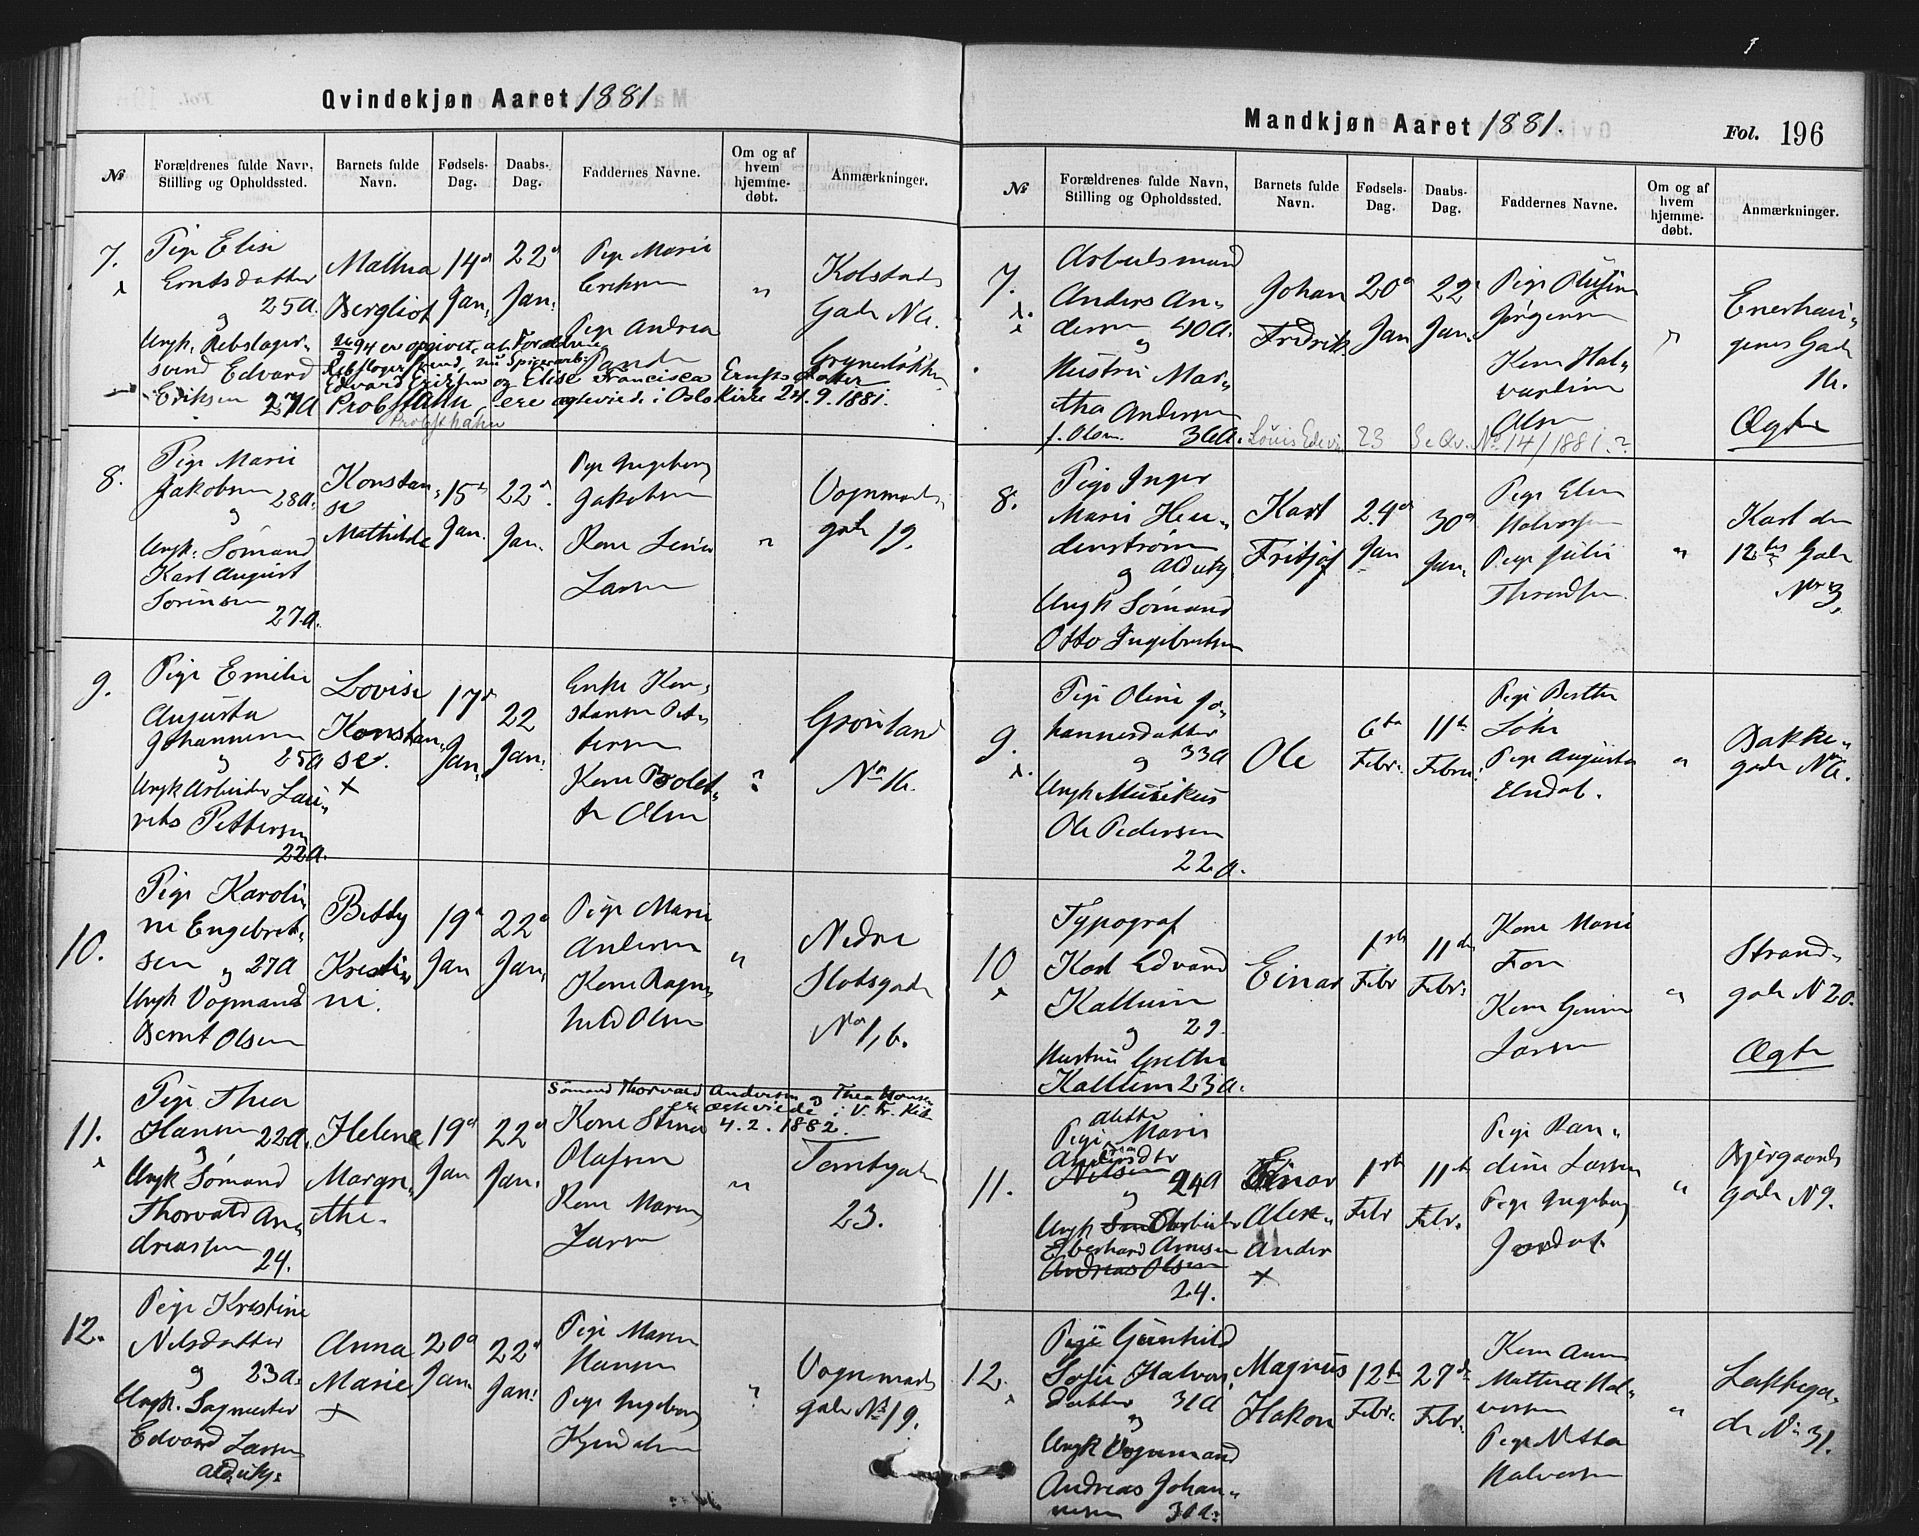 Qvindekjøn Aaret 1881
№
Forældrenes fulde Navn, Stilling og Opholdssted.
Barnets fulde Navn.
Fødsels-Dag.
Daabs-Dag.
Faddernes Navne.
Om og af hvem hjemme-døbt.
Anmærkninger.
7.
Pige Elise
Erntsdatter
25 a.
og
Ungk. Rebslager-
svend Edvard
Eriksen 27 a
Mathea
Bergliot
14d
Jan.
22d
Jan.
Pige Marie
Eriksen
Pige Andrea
"
Kolstad
Gade
Grynerløkken
94 er opgivet, at Forældrene
Rebslagersvend, nu Spigerarb.
Edvard Eriksen og Elise Francisca Ernfsdatter
Probsthahn, ere ægteviede i Oslo Kirke 24.9.1881.
Probsthahn
8.
Pige Marie
Jakobsen 28 a.
og
Ungk. Sømand
Karl August
Sørensen
27 a.
Konstan-
se
Mathilde
15d
Jan.
22d
Jan.
Pige Ingeborg
Jakobsen
Kone
Larsen
"
Vognmands
gade 19.
9.
Pige Emilie
Augusta
Johannesen
og 25 a
Ungk Arbeider Lau-
rits Pettersen
22 a.
Lovise
Konstan-
se.
+
17d
Jan.
22
Jan.
Enke Kon-
stanse Pet-
tersen
Kone Bolet-
te Olsen
"
Grønland
No 16.
10.
Pige Karoli-
ne Engebret-
sen og 27 a
Ungk Vognmand
Bernt Olsen
Betty
Kristi-
ne.
19d
Jan
22d
Jan.
Pige Marie
Andersen
Kone Ragn-
hild Olsen
"
Nedre
Slotsgade
No 1, b.
11.
Pige Thea
Hansen 22 a.
og
Ungk Sømand
Thorvald An-
dreassen
24.
Helene
Margre-
the.
19d
Jan
22d
Jan.
Sømand Thorvald Andersen og Thea Hansen
ere ægteviede i V. Fr. Kirke
4.2.1882.
Kone Stina
Olafsen
Kone Maren
Larsen
"
Tomtegade
23.
12.
Pige Kristine
Nilsdatter
og 23 a.
Ungk. Sagmester
Edvard Larsen
Anna
Marie
+
20d
Jan.
22d
Jan.
Pige Maren
Hansen
Pige Ingeborg
"
Vognmands
gade No 19.
Mandkjøn Aaret 1881.
Fol. 196
№
Forældrenes fulde Navn, Stilling og Opholdssted.
Barnets fulde Navn.
Fødsels-Dag.
Daabs-Dag.
Faddernes Navne.
Om og af hvem hjemme-døbt.
Anmærkninger.
7.
Arbeidsmand
Anders An-
dersen 40 a.
og
Hustru Mar-
tha Andersen
f. Olsen 36 a.
Johan
Fredrik
20d
Jan
22d
Jan.
Pige Olufine
Jørgensen
Kone Hal-
vardine
Olsen
"
Enerhau-
gens Gade
16.
Ægte
23 Se Qv. No 14/1881.?
8.
Pige Inger
Marie Hen-
denstrøm
og
Ungk Sømand
Otto Ingebretsen
Karl
Fritjof
24d
Jan
30d
Jan.
Pige Elen
Halvorsen
Pige Julie
Throndsen
"
Karl den
12tes Gade
No 3.
9.
Pige Oline Jo-
hannesdatter
og 33 a
Ungk Musikus
Ole Pedersen
22 a.
Ole
6te
Febr.
11te
Febru.
Pige Berthe
Pige Augusta
"
Bakke-
gade
10
Typograf
Karl Edvard
Kallum
og 29.
Hustru Grethe
Kallum 23 a.
Einar
1ste
Febr
11te
Febr.
Kone Marie
Foss
Kone
Larsen
"
Strand-
gade N 20.
Ægte
11.
Pige Marie
Nilsen
og 24 a
Ungk Arbeider
Eberhard Arnesen
Andreas Olsen
24.
Einar
Alex-
ander
+
1ste
Febr
11te
Febr.
Pige Ran-
dine Larsen
Pige Ingeborg
"
Bjergaards
gade N 9.
12.
Pige Gunhild
Sofie Halvors-
datter 31 a
og
Ungk Vognmand
Andreas Johan-
nesen 30 a.
Magnus
Hakon
12te
Febr.
27de
Febr.
Kone Anne
Mathea Hal-
vorsen
Pige Netta
Halvorsen
"
Lakkega-
de No 31.